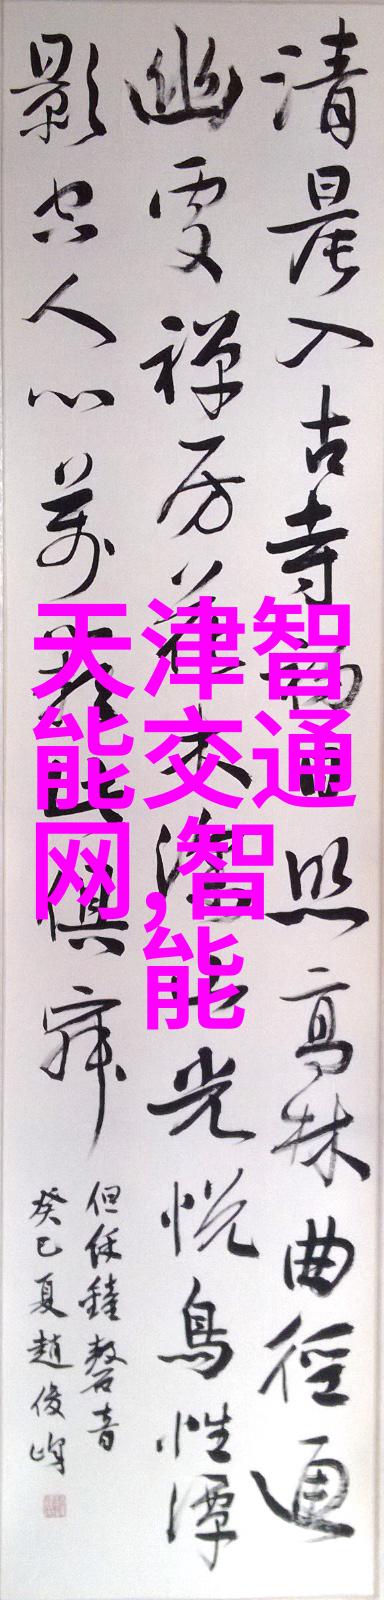 清晨入古寺初日照高林曲徑通
幽處禅房花木深山光悦鳥性潭
影空人心萬籟此俱寂
但餘鐘磬音
癸巳夏趙俊峰
天津智
能交通
网,智
能